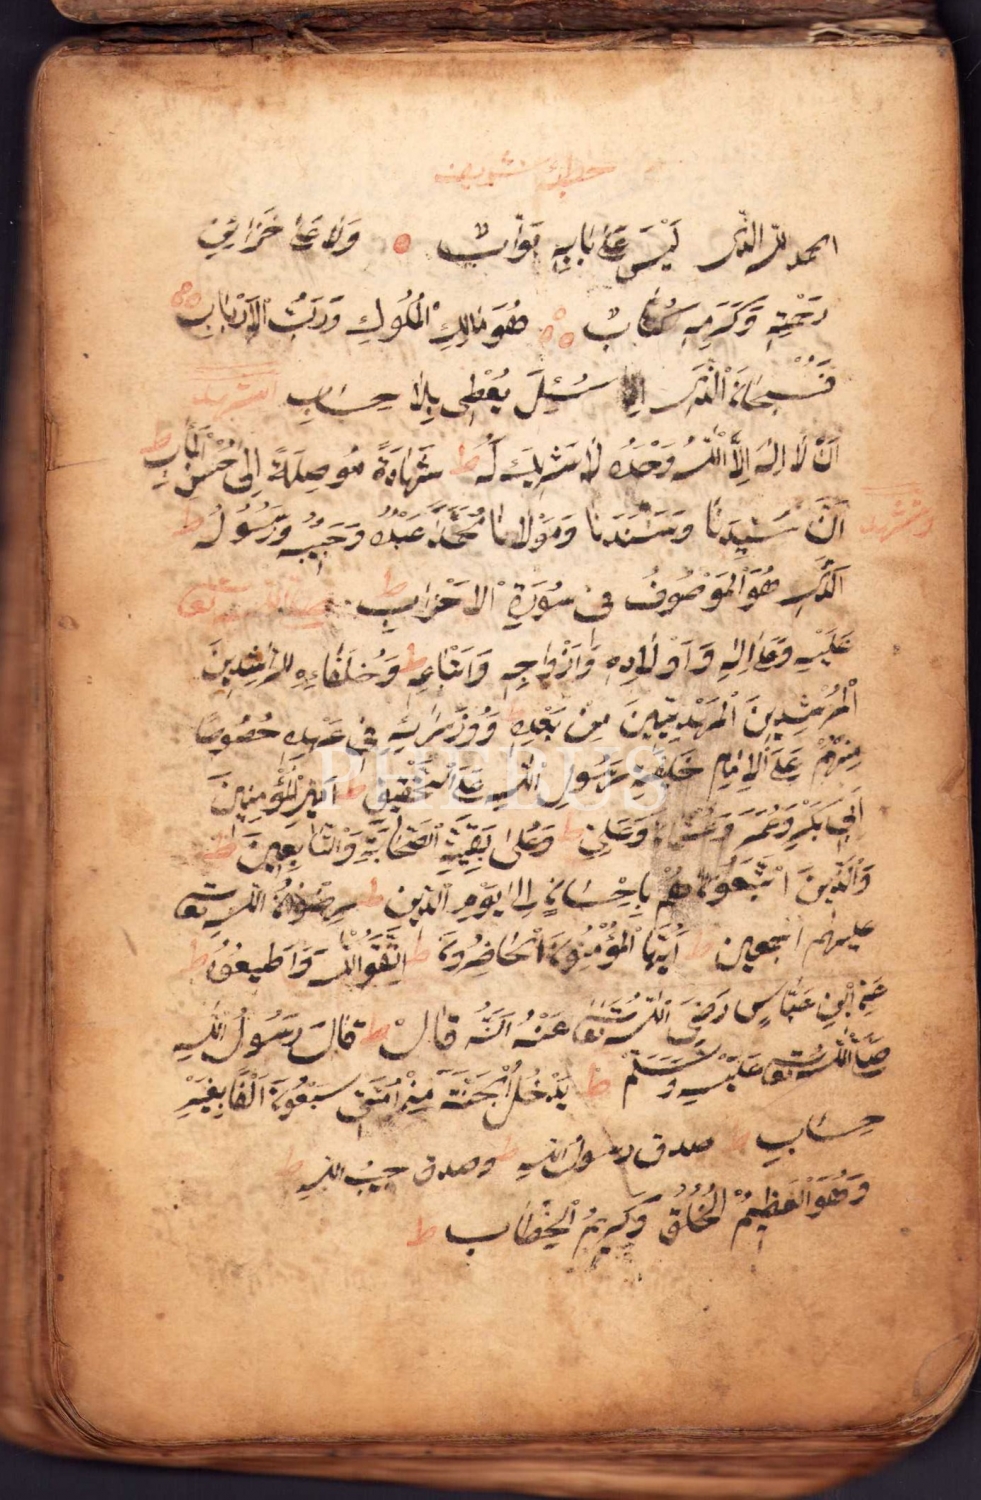 الحمد لله الذى لَيْسَ عَلىٰ بَابِهِ بَوَّابٌ وَلَا عَلىٰ خَزَائِنِ
رَحْمَتِهِ وَكَرَمِهِ حُجَّابٌ هُوَ مَالِكِ الْمُلُوكِ وَرَبُّ الْاَرْبَابِ
فَسُبْحَانَ الَّذِى اِذَا سُئِلَ يُعْطِى بِلَا حِسَابِ اشهد
اَنْ لَا اِلٰهَ اِلَّا اللهُ وَحْدَهُ لَا شَرِيكَ لَهُ ط شَهَادَةً مُوصِلَةً اِلىٰ حُسْنِ الْمَآبِ ط
واشهد اَنَّ سَيِّدَنَا وَسَنَدَنَا وَمَوْلَانَا مُحَمَّدًا عَبْدُهُ وَحَبِيبُهُ وَرَسُولُهُ ط
اَلَّذِى هُوَ الْمَوْصُوفُ فِى سُورَةِ الْاَحْزَابِ ط صلى الله تعا
عَلَيْهِ وَعَلىٰ اٰلِهِ وَاَوْلَادِهِ وَاَزْوَاجِهِ وَاَتْبَاعِهِ ط وَخُلَفَاءِهِ الرَّاشِدِينَ
الْمُرْشِدِينَ الْمَهْدِيِّينَ مِنْ بَعْدِهِ وَوُزَرَائِهِ فِى عَهْدِهِ خُصُوصًا
مِنْهُمْ عَلَى الْاِمَامِ خَلِيفَةِ رَسُولِ اللهِ عَلَى التَّحْقِيقِ ط اَمِيرِ الْمُؤْمِنِينَ
اَبِى بَكْرٍ وَعُمَرَ وَعُثْمَانَ وَعَلِىٍّ ط وَعَلىٰ بَقِيَّةِ الصَّحَابَةِ وَالتَّابِعِينَ ط
وَالَّذِينَ اتَّبَعُوهُمْ بِاِحْسَانٍ اِلىٰ يَوْمِ الدِّينِ ط رِضْوَانُ اللهِ تعا
عليهم اجمعين ط اَيُّهَا الْمُؤْمِنُونَ الْحَاضِرُونَ ط اِتَّقُوا اللهَ وَاَطِيعُونَ ط
عَنِ ابْنِ عَبَّاسٍ رَضِىَ اللهُ تَعَا عَنْهُ اَنَّهُ قَالَ ط قَالَ رَسُولُ اللهِ
صَلَّى اللهُ تَعَا عَلَيْهِ وَسَلَّمْ ط يَدْخُلُ الْجَنَّةَ مِنْ اُمَّتِى سَبْعُونَ اَلْفًا بِغَيْرِ
حِسَابٍ ط صدق رسول الله ط وصدق حبيب الله ط
وَهُوَ الْعَظِيمُ الْخُلُقُ وَكَرِيمُ الْخِطَابِ ط
PHEBUS